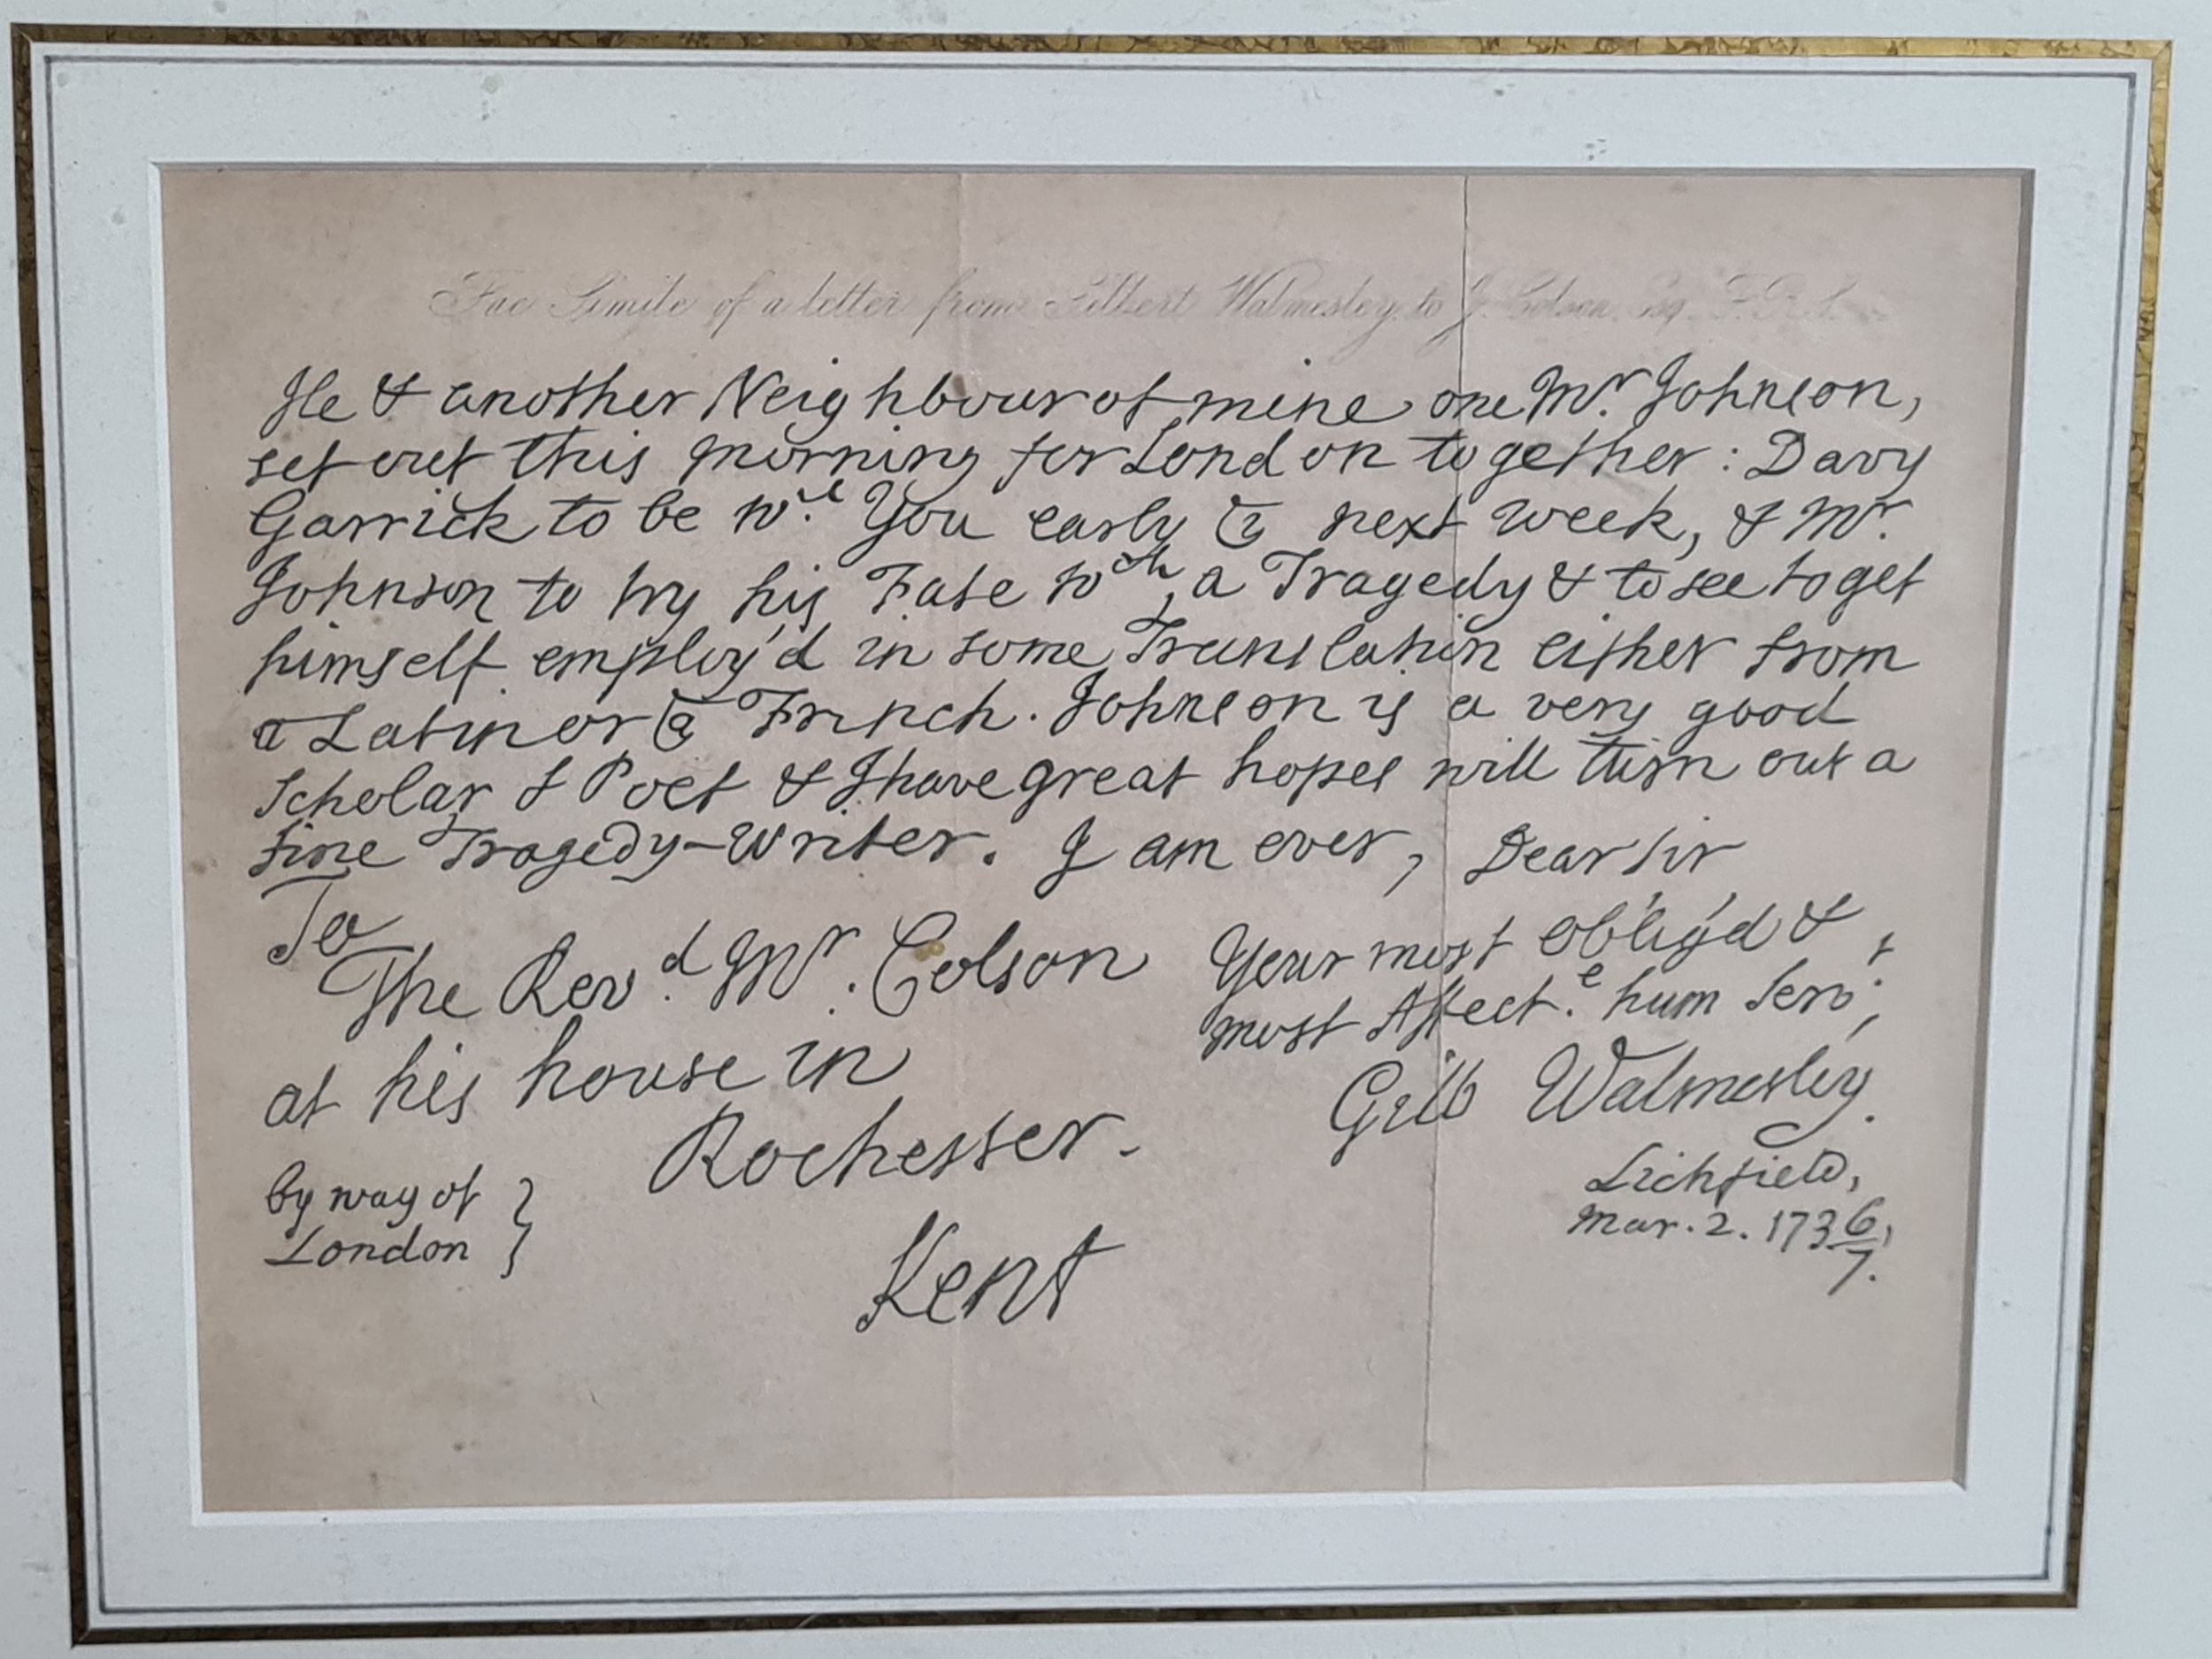 Fac Simile of a letter from Gilbert Walmesley to J. Colson Esq. F.R.S.
He & another Neighbour of mine one Mr. Johnson,
set out this morning for London together: Davy
Garrick to be wth. You early ye next week, & Mr.
Johnson to try his Fate wth, a Tragedy & to see to get
himself employ'd in some Translation either from
ye Latin or ye French. Johnson is a very good
Scholar & Poet & I have great hopes will turn out a
fine Tragedy-Writer. I am ever, Dear Sir
To
The Revd. Mr. Colson
at his house in
Rochester.
Kent
by way of
London
Your most obligd &
most Affecte. hum Servt;
Gilb Walmesley.
Lichfield,
Mar. 2. 1736/7.